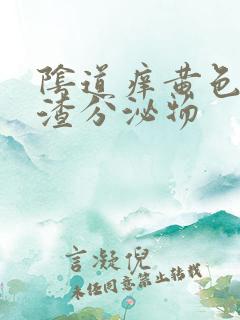 陰道痒黄色
渣分泌物
言凝倪
未经同意禁止转载